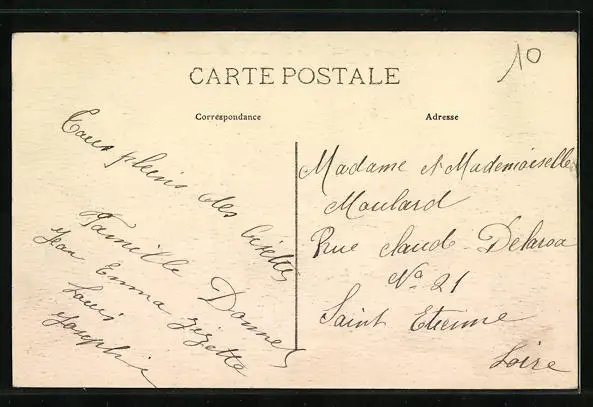 10
CARTE POSTALE
Correspondance
Adresse
pleins des
Famille Donnet
Jean Emma Zizette
Louis
Josephine
Madame et Mademoiselle
Moulard
Rue Claude-Delaroa
No 21
Saint Etienne
Loire